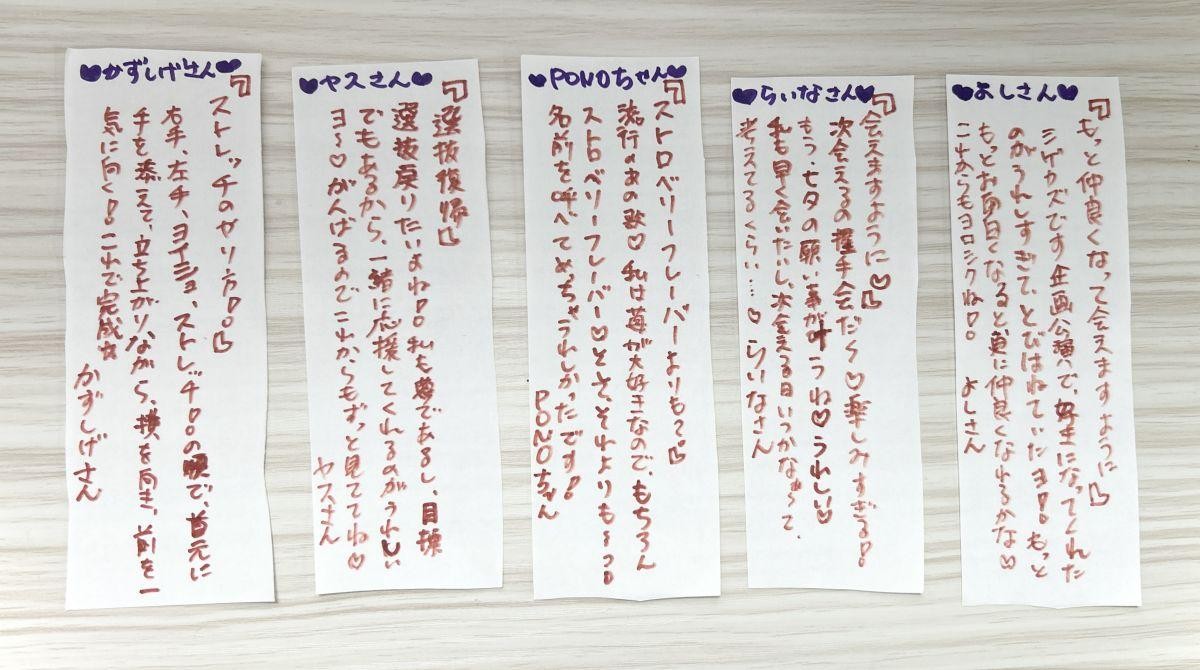 ♥かずしげさん♥
『ストレッチのやり方!!』
右手、左手、ヨイショ、ストレッチ!!の順で、首元に
手を添えて、立ち上がりながら、横を向き、前を一
気に向く!これで完成☆
かずしげさん
♥ヤスさん♥
『選抜復帰』
選抜戻りたいよね!!私も夢であるし、目標
でもあるから、一緒に応援してくれるのがうれしい
ヨ〜♡がんばるのでこれからもずっと見ててね♡
ヤスさん
♥PONOちゃん♥
『ストロベリーフレーバーよりも?』
流行のあの歌♡私は苺が大好きなので、もちろん
ストロベリーフレーバー♡とそそそれよりも〜っ!!
名前を呼べてめっちゃうれしかったです!!
PONOちゃん
♥らいなさん♥
『会えますように♡』
次会えるの握手会だぐ♡楽しみすぎる!!
もう、七夕の願い事が叶うね♡うれしい♡
私も早く会いたいし、次会える日いつかなぁ〜て、
考えてるくらい…♡らいなさん
♥よしさん♥
『もっと仲良くなって会えますように』
シゲカズです企画公演で、好きになってくれた
のがうれしすぎて、とびはねていたヨ!!もっと
もっとお面白くなると、更に仲良くなれるかな♡
これからもヨロシクね!!
よしさん